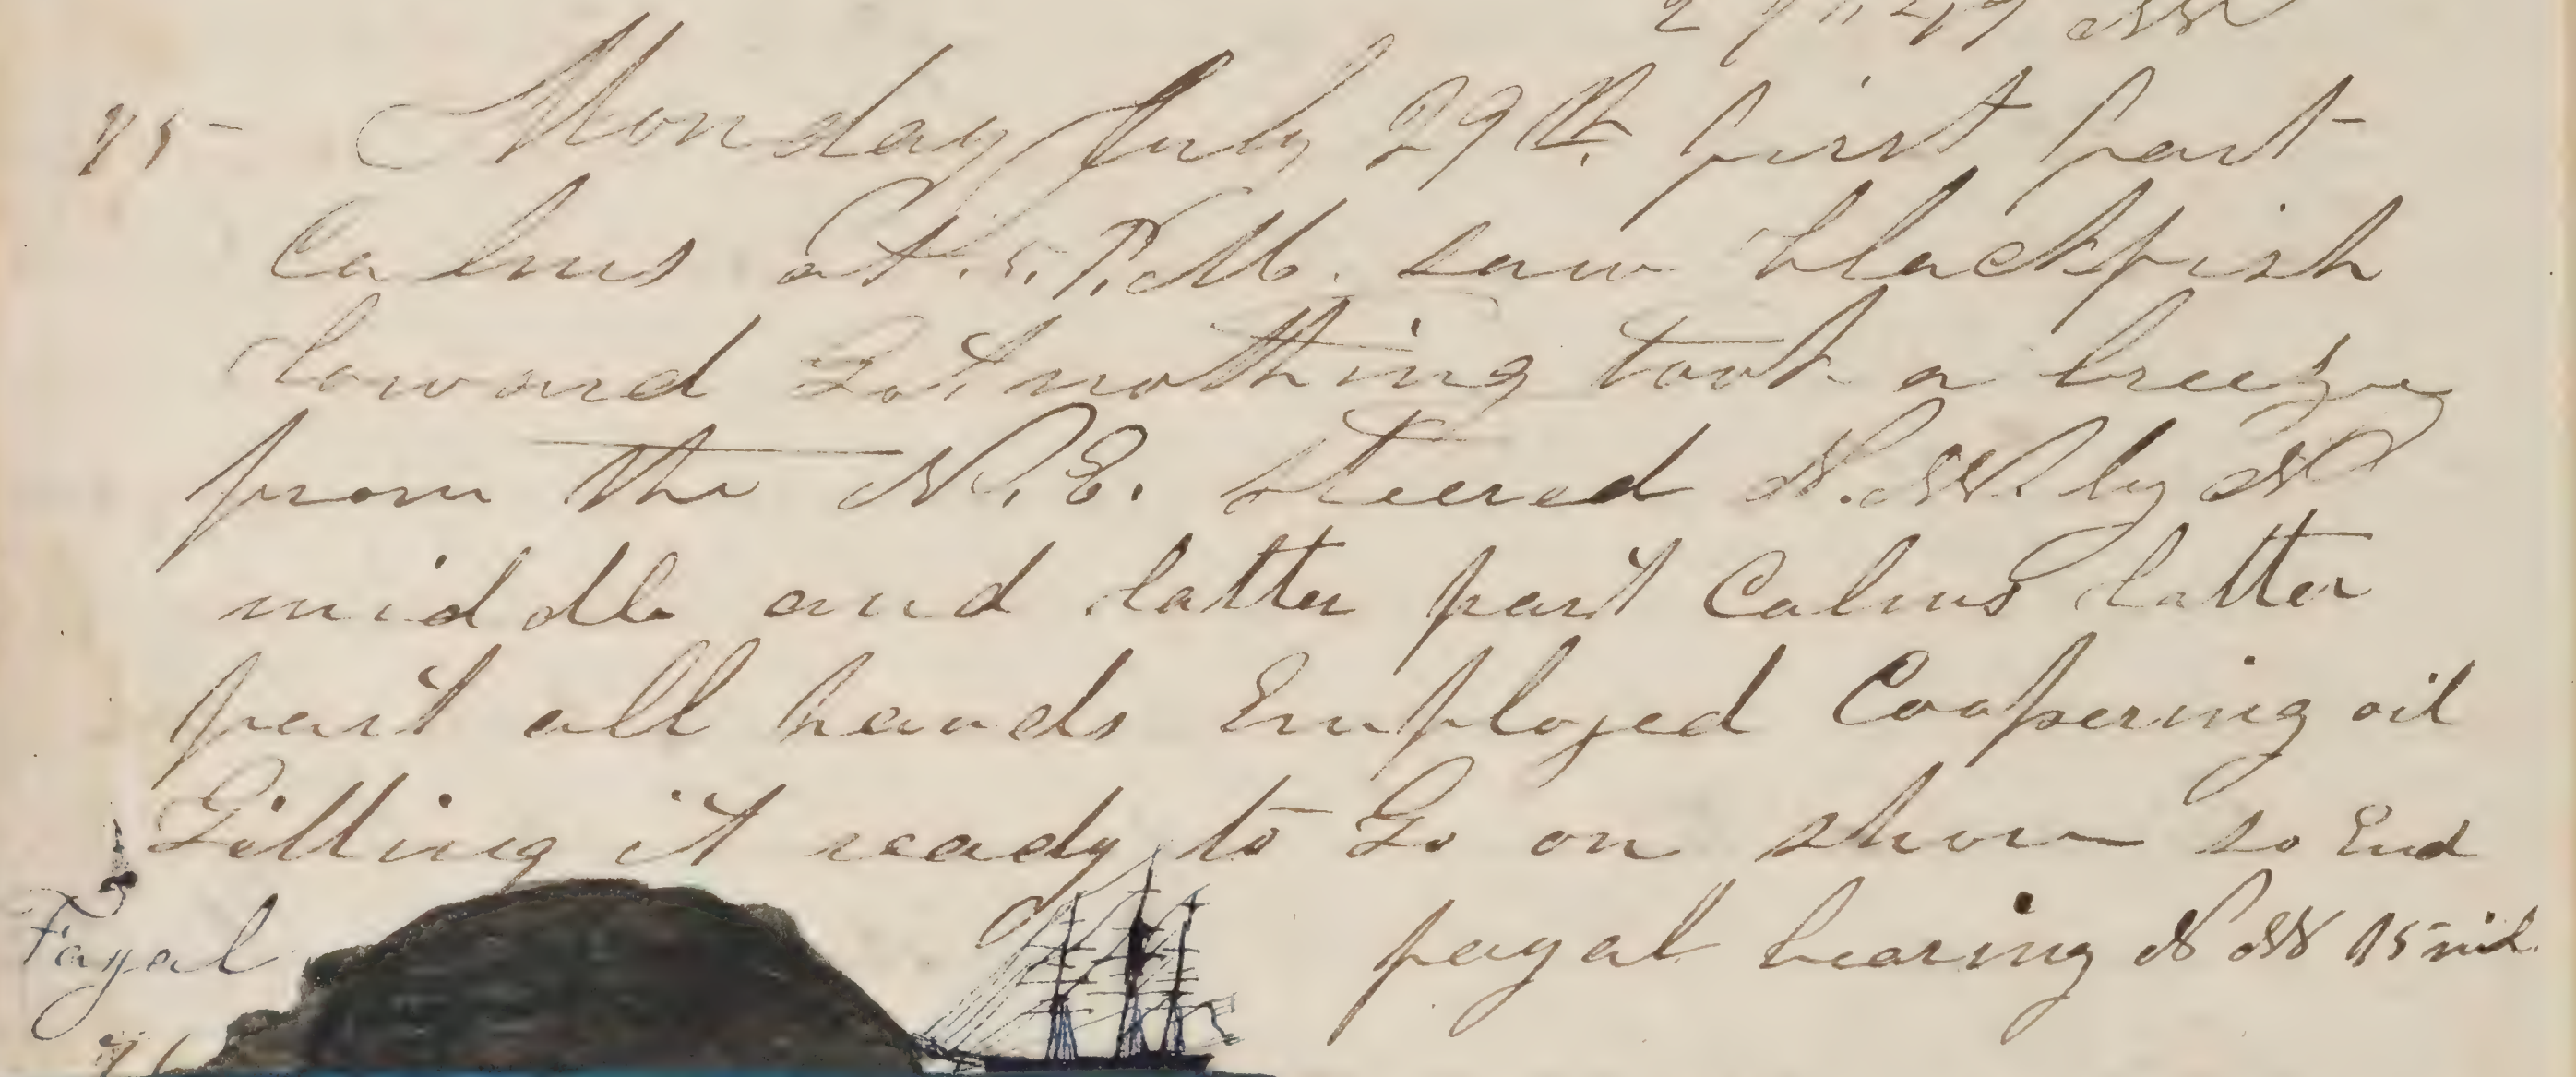 75 Monday July 29th first part
Calms at 5. P.M. saw blackfish
lowered Got nothing took a breeze
from the N.E. steered N.W. by N
middle and latter part Calms latter
part all hands Employed Coopering oil
Gitting it ready to Go on shore so End
Fayal
fayal bearing N NW 15 mil
76